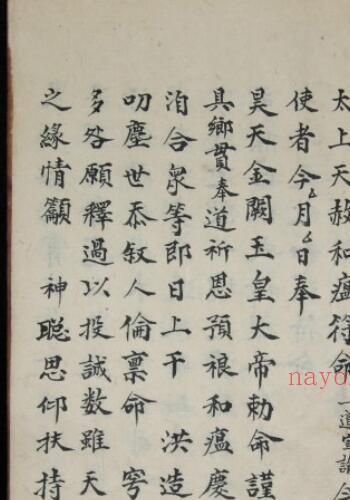 太上天赦和瘟符命一道宣諭
使者今厶月厶日奉
昊天金闕玉皇大帝勅命謹
具鄉貫奉道祈恩預禳和瘟慶
洎合衆等即日上干 洪造
叨塵世忝叙人倫禀命 穹
多咎願釋過以投誠数雖天
之緣情籲 神聡思仰扶持
nayo